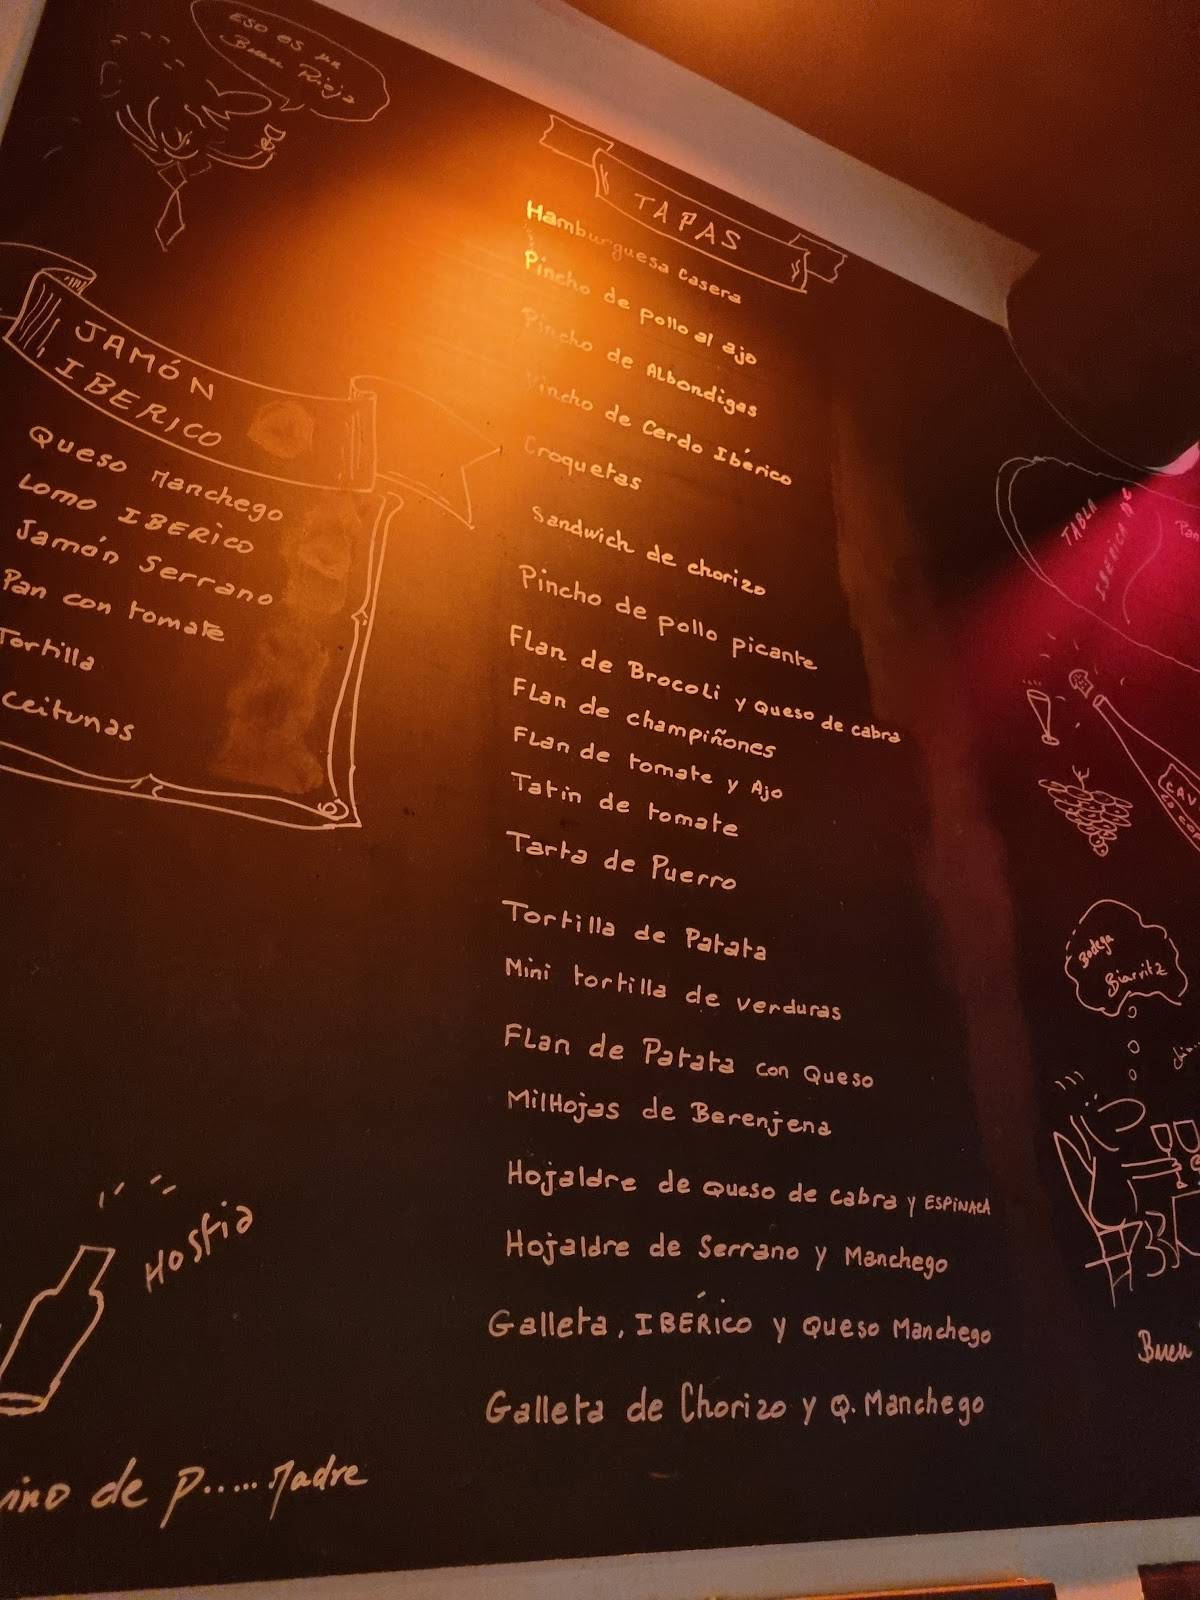 ESO ES UN
Buen Rioja
JAMÓN
IBERICO
Queso Manchego
LOMO IBERICO
Jamón Serrano
Pan con tomate
Tortilla
ceitunas
HOSTIA
vino de p.....Madre
TAPAS
Hamburguesa casera
Pincho de pollo al ajo
Pincho de Albondigas
Pincho de Cerdo Ibérico
Croquetas
Sandwich de chorizo
Pincho de pollo picante
Flan de Brocoli y Queso de cabra
Flan de champiñones
Flan de tomate y Ajo
Tatin de tomate
Tarta de Puerro
Tortilla de Patata
Mini tortilla de verduras
Flan de Patata con Queso
MilHojas de Berenjena
Hojaldre de Queso de Cabra y ESPINACA
Hojaldre de Serrano y Manchego
Galleta, IBÉRICO y Queso Manchego
Galleta de Chorizo y Q. Manchego
TABLA
IBERICA
Pan
CAV
Bodega
Biarritz
chin..
Buen